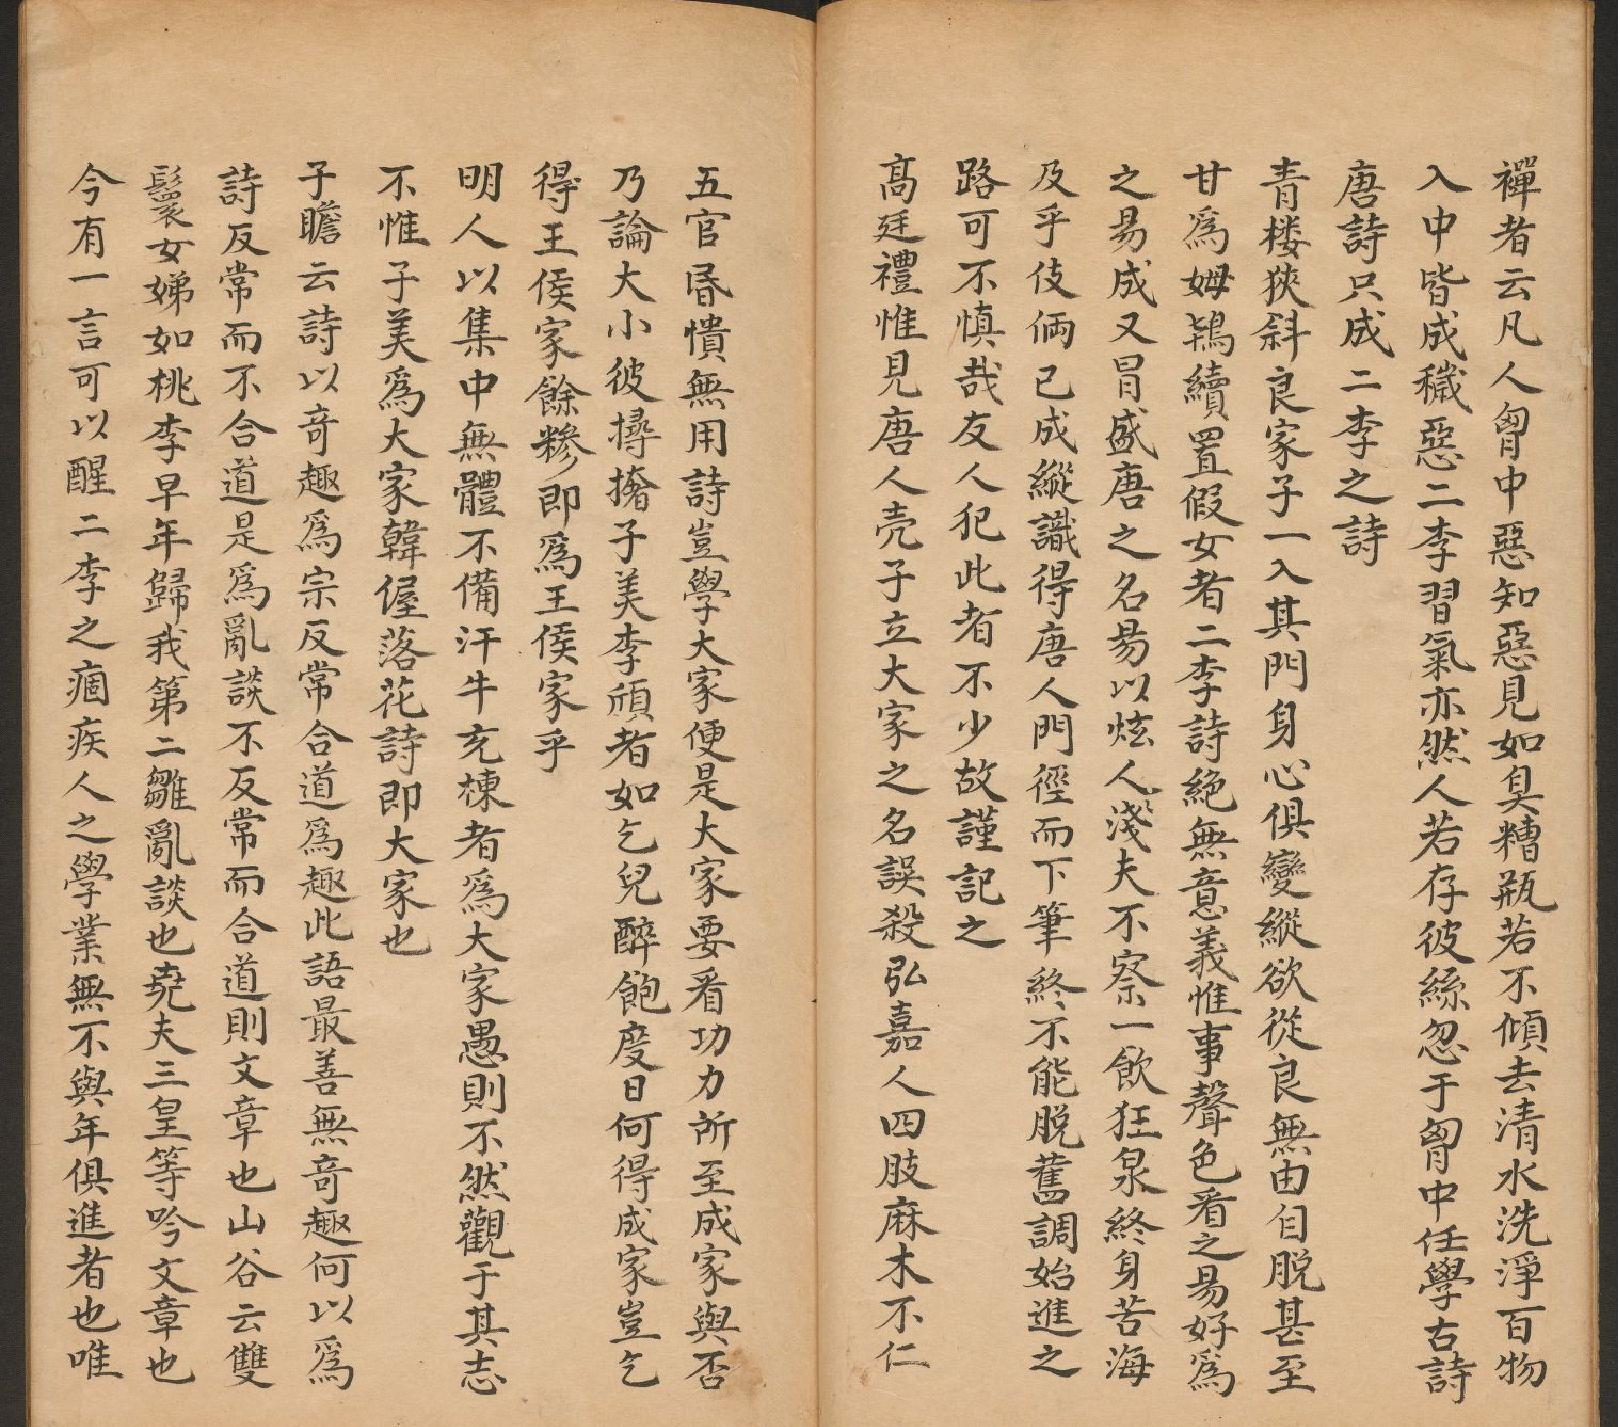 禪者云凡人胷中惡知惡見如臭糟瓶若不傾去清水洗淨百物
入中皆成穢惡二李習氣亦然人若存彼絲忽于胷中任學古詩
唐詩只成二李之詩
青楼狹斜良家子一入其門身心俱變縱欲從良無由自脱甚至
甘爲姆鴇續置假女者二李詩絶無意義惟事聲色看之易好爲
之易成又冒盛唐之名易以炫人淺夫不察一飲狂泉終身苦海
及乎伎倆已成縱識得唐人門徑而下筆終不能脱舊調始進之
路可不慎哉友人犯此者不少故謹記之
高廷禮惟見唐人壳子立大家之名誤殺弘嘉人四肢麻木不仁
五官昬憒無用詩豈學大家便是大家要看功力所至成家與否
乃論大小彼撏撦子美李頎者如乞兒醉飽度日何得成家豈乞
得王侯家餘糝即爲王侯家乎
明人以集中無體不備汗牛充棟者爲大家愚則不然觀于其志
不惟子美爲大家韓偓落花詩即大家也
子瞻云詩以奇趣爲宗反常合道爲趣此語最善無奇趣何以爲
詩反常而不合道是爲亂談不反常而合道則文章也山谷云雙
鬟女娣如桃李早年歸我第二雛亂談也堯夫三皇等吟文章也
今有一言可以醒二李之痼疾人之學業無不與年俱進者也唯